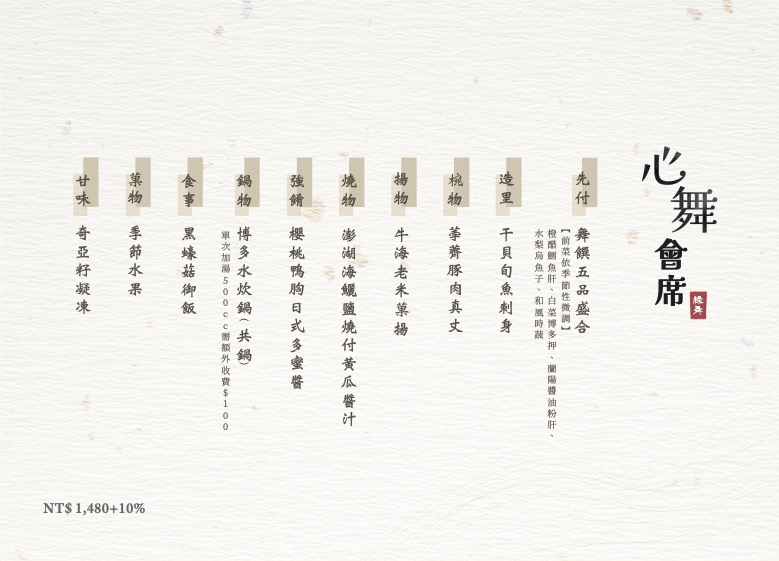 心舞
會席
緣舞
先付
舞饌五品盛合
【前菜依季節性微調】
橙醋鱈魚肝、白菜博多押、蘭陽醬油粉肝、
水梨烏魚子、和風時蔬
造里
干貝旬魚刺身
椀物
荸薺豚肉真丈
揚物
牛海老米菓揚
燒物
澎湖海鱺鹽燒付黃瓜醬汁
強餚
櫻桃鴨胸日式多蜜醬
鍋物
博多水炊鍋(共鍋)
單次加湯500cc需額外收費$100
食事
黑蠔菇御飯
菓物
季節水果
甘味
奇亞籽凝凍
NT$ 1,480+10%